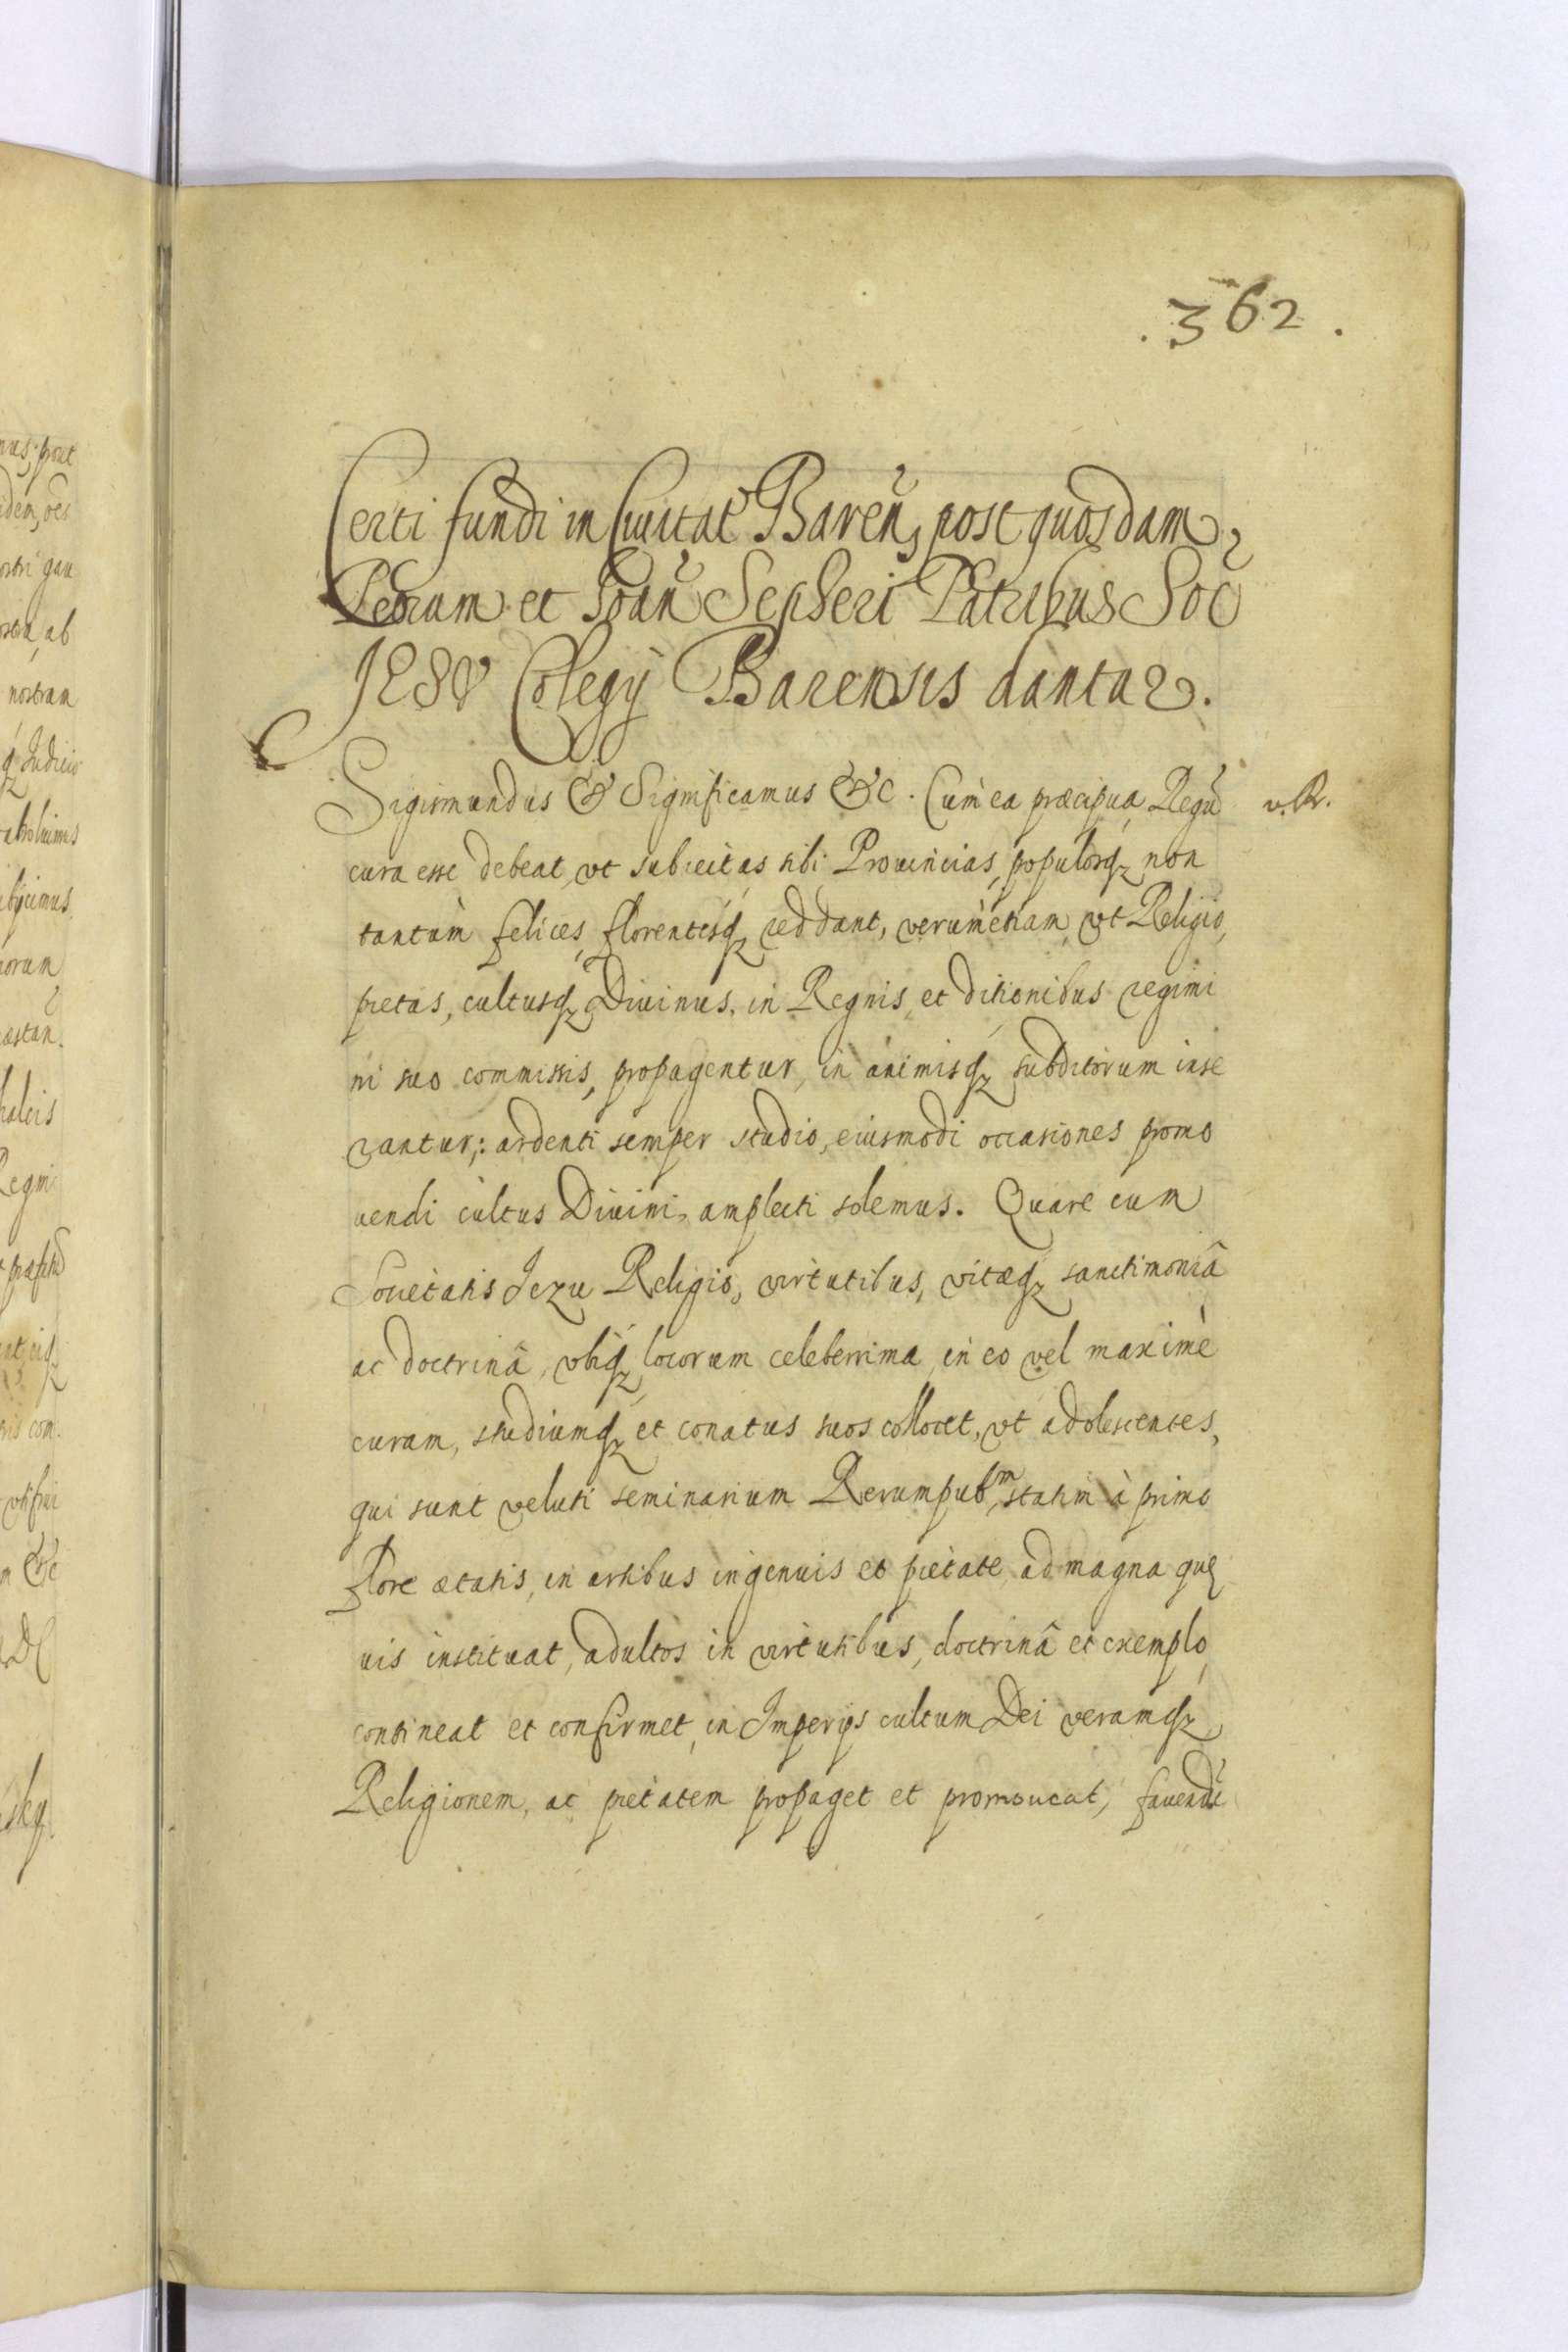 .362.
Certi fundi in Ciuitat Baren, post quosdam
Petrum et Joan Sepheri Patribus Soc
IESV Colegÿ Barensis dantar.
Sigismundus &c Significamus &c. Cum ea præcipua Regũ
v. R.
cura esse debeat, vt subiectas sibi Prouincias, populosq; non
tantùm felices, florentesq; reddant, verumetiam, vt Religio,
pietas, cultusq; Diuinus, in Regnis, et ditionibus regimi
ni suo commissis, propagentur, in animisq; subditorum inse
rantur; ardenti semper studio, eiusmodi occasiones promo
uendi cultus Diuini, amplecti solemus. Quare cum
Societatis Jezu Religio, virtutibus, vitæq; sanctimoniâ
ac doctrinâ, vbiq; locorum celeberrima, in eo vel maximè
curam, studiumq; et conatus suos collocet, vt adolescentes,
qui sunt veluti seminarium Rerumpubm, statim à primo
flore ætatis, in artibus ingenuis et pietate, ad magna quę
uis instituat, adultos in virtutibus, doctrinâ et exemplo
contineat et confirmet, in Imperÿs cultum Dei veramq;
Religionem, ac pietatem propaget et promoueat, fauendũ